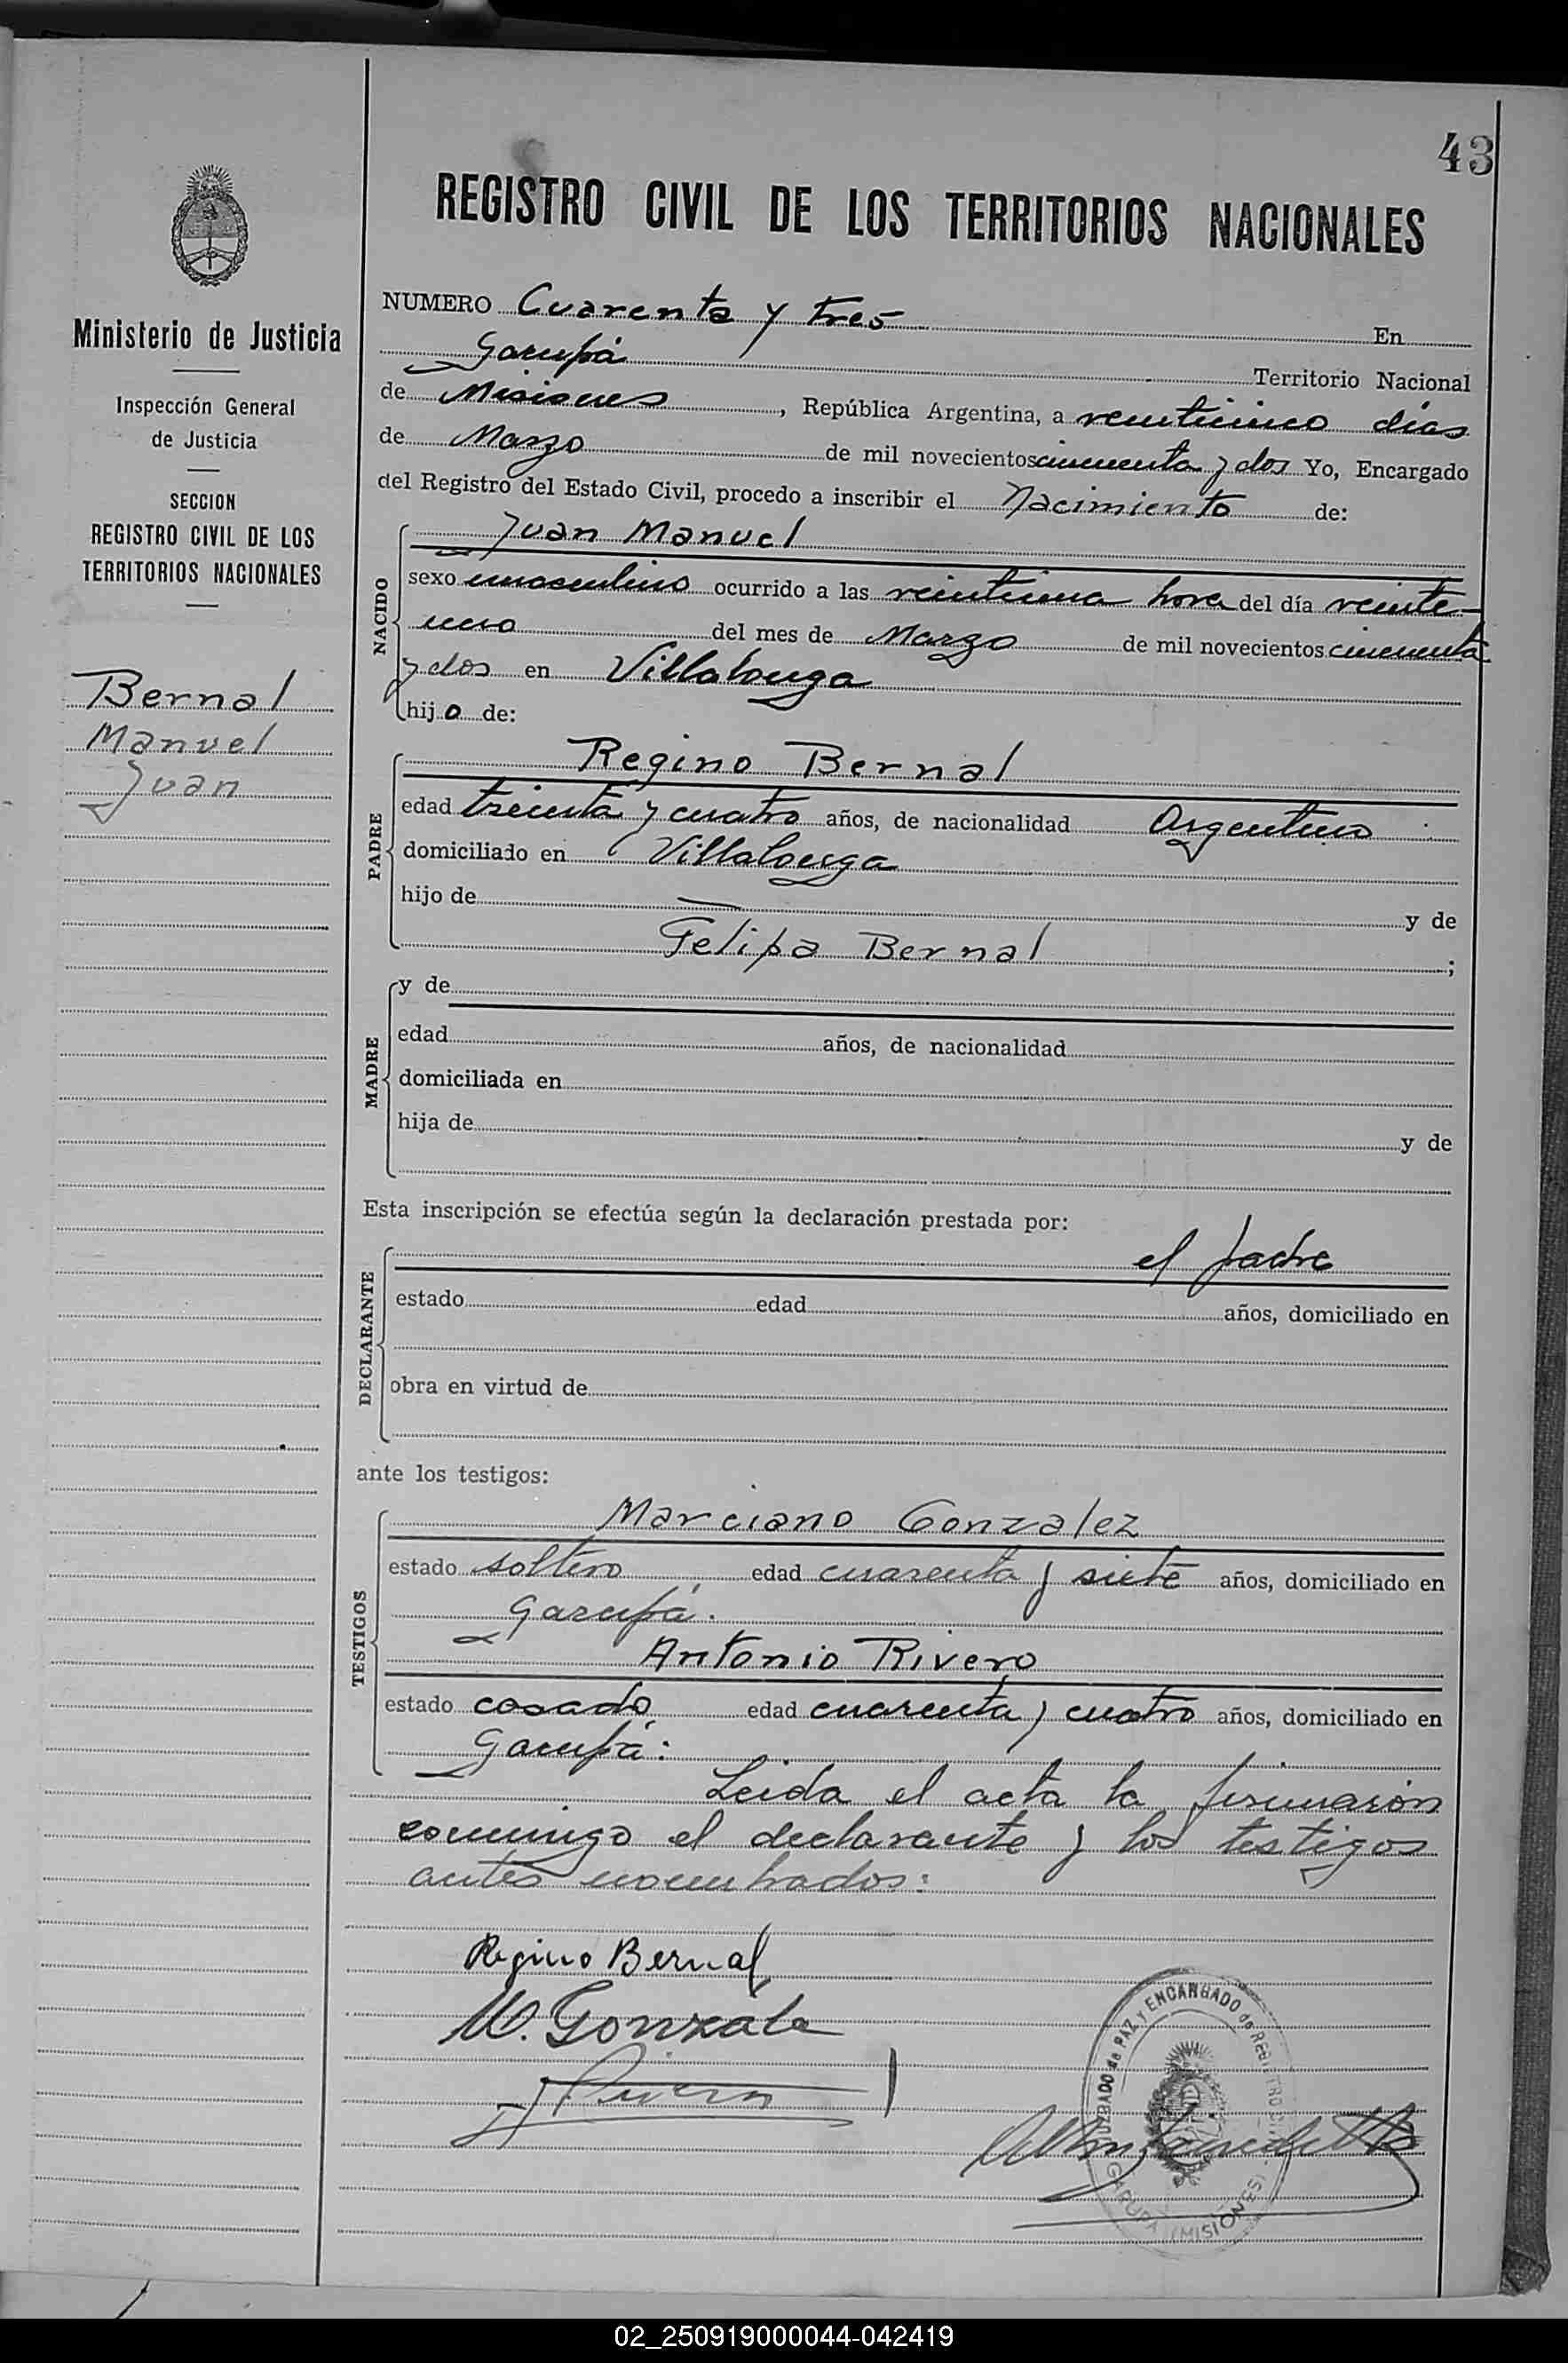 43
REGISTRO CIVIL DE LOS TERRITORIOS NACIONALES
Ministerio de Justicia
Inspección General
de Justicia
SECCION
REGISTRO CIVIL DE LOS
TERRITORIOS NACIONALES
Bernal
Manuel
Juan
NUMERO Cuarenta y tres En
Garupá Territorio Nacional
de Misiones, República Argentina, a veinticinco días
de Marzo de mil novecientos cincuenta y dos Yo, Encargado
del Registro del Estado Civil, procedo a inscribir el Nacimiento de:
NACIDO
Juan Manuel
sexo masculino ocurrido a las veintiuna hora del día veinte-
uno del mes de Marzo de mil novecientos cincuenta
y dos en Villalonga
hijo de:
PADRE
Regino Bernal
edad treinta y cuatro años, de nacionalidad Argentino
domiciliado en Villalonga
hijo de — y de
Felipa Bernal ;
MADRE
y de
edad años, de nacionalidad
domiciliada en
hija de y de
Esta inscripción se efectúa según la declaración prestada por:
DECLARANTE
el padre
estado edad años, domiciliado en
obra en virtud de
ante los testigos:
TESTIGOS
Marciano Gonzalez
estado soltero edad cuarenta y siete años, domiciliado en
Garupá.
Antonio Rivero
estado casado edad cuarenta y cuatro años, domiciliado en
Garupá:
Leida el acta la firmarón
conmigo el declarante y los testigos
antes nombrados:
Regino Bernal
M. Gonzalez
Rivero
JUZGADO de PAZ Y ENCARGADO de REGISTRO CIVIL
GARUPA (MISIONES)
02_250919000044-042419